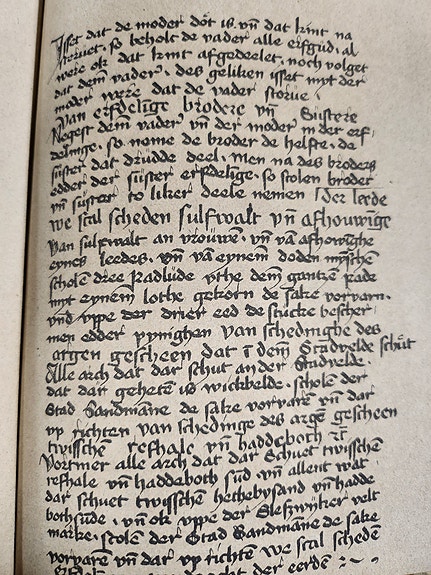 Isset dat de moder dot is. vn̄ dat kint na
steruet. so beholt de vader alle erfgud. al
were ok dat kint afgedeelet. noch volget
dat dem̄ vader. des geliken isset myt der
moder were dat de vader storue.
Van erfdelige brodere vn̄ Süstere
Negest dem̄ vader vn̄ der moder in der erf-
delinge. so neme de broder de helfte. de
süster dat drüdde deel. men na des broders
edder der süster erfdelige. so stolen broder
vn̄ süster to liker deele nemen Der leede
we scal scheden sulfwalt vn̄ afhouwīge
Van sulfwalt an vrouwen. vn̄ vā afhowighe
eynes leedes. vn̄ vā eynem doden mīschen
scholē dree Radlude vthe dem̄ gantzē rade
myt eynem̄ lothe gekorn de sake vorvarn.
vnd vppe der drier eed de stücke bescher
men edder pynighen Van schedinghe des
argen gescheen dat ī dem̄ Stadvelde schüt
Alle arch dat dar schut an der Stadvelde.
dat dar gehetē is wickbelde. scholē der
Stad Sandmāne de sake vorvarē vn̄ dar
vp richten van schedinge des argē gescheen
twisschē refhale vn̄ haddeboth
Vortmer alle arch dat dar Schuet twisschē
refhale vn̄ haddeboth süd vn̄ allent wat
dar schuet twisschē hethebysand vn̄ hadde
both sude. vn̄ ok vppe der Sleszwyker velt
marke. scolē der Stad Sandmāne de sake
vorvarē vn̄ dat vp richtē we scal schedē
der eerden